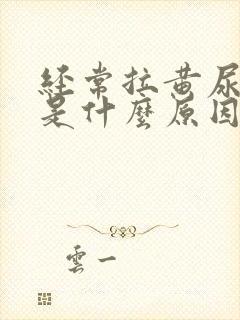 經常拉黃尿
是什麼原因
雲一